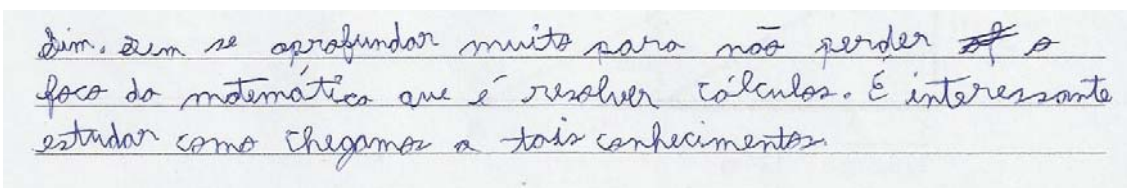 Sim. Sem se aprofundar muito para não perder o
foco da matemática que é resolver cálculos. É interessante
estudar como chegamos a tais conhecimentos.